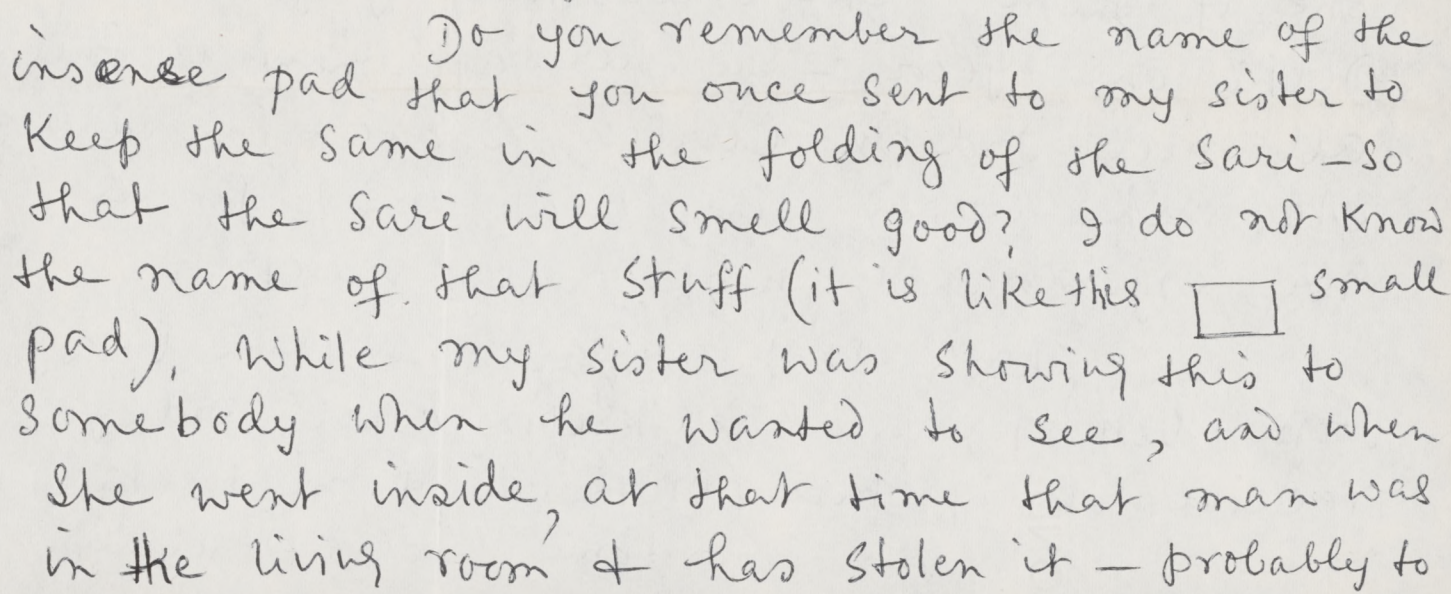 Do you remember the name of the
insense pad that you once sent to my sister to
Keep the same in the folding of the Sari - so
that the Sari will smell good? I do not know
the name of that stuff (it is like this small
pad). While my sister was showing this to
Somebody when he wanted to see, and when
She went inside, at that time that man was
in the living room & has stolen it - probably to